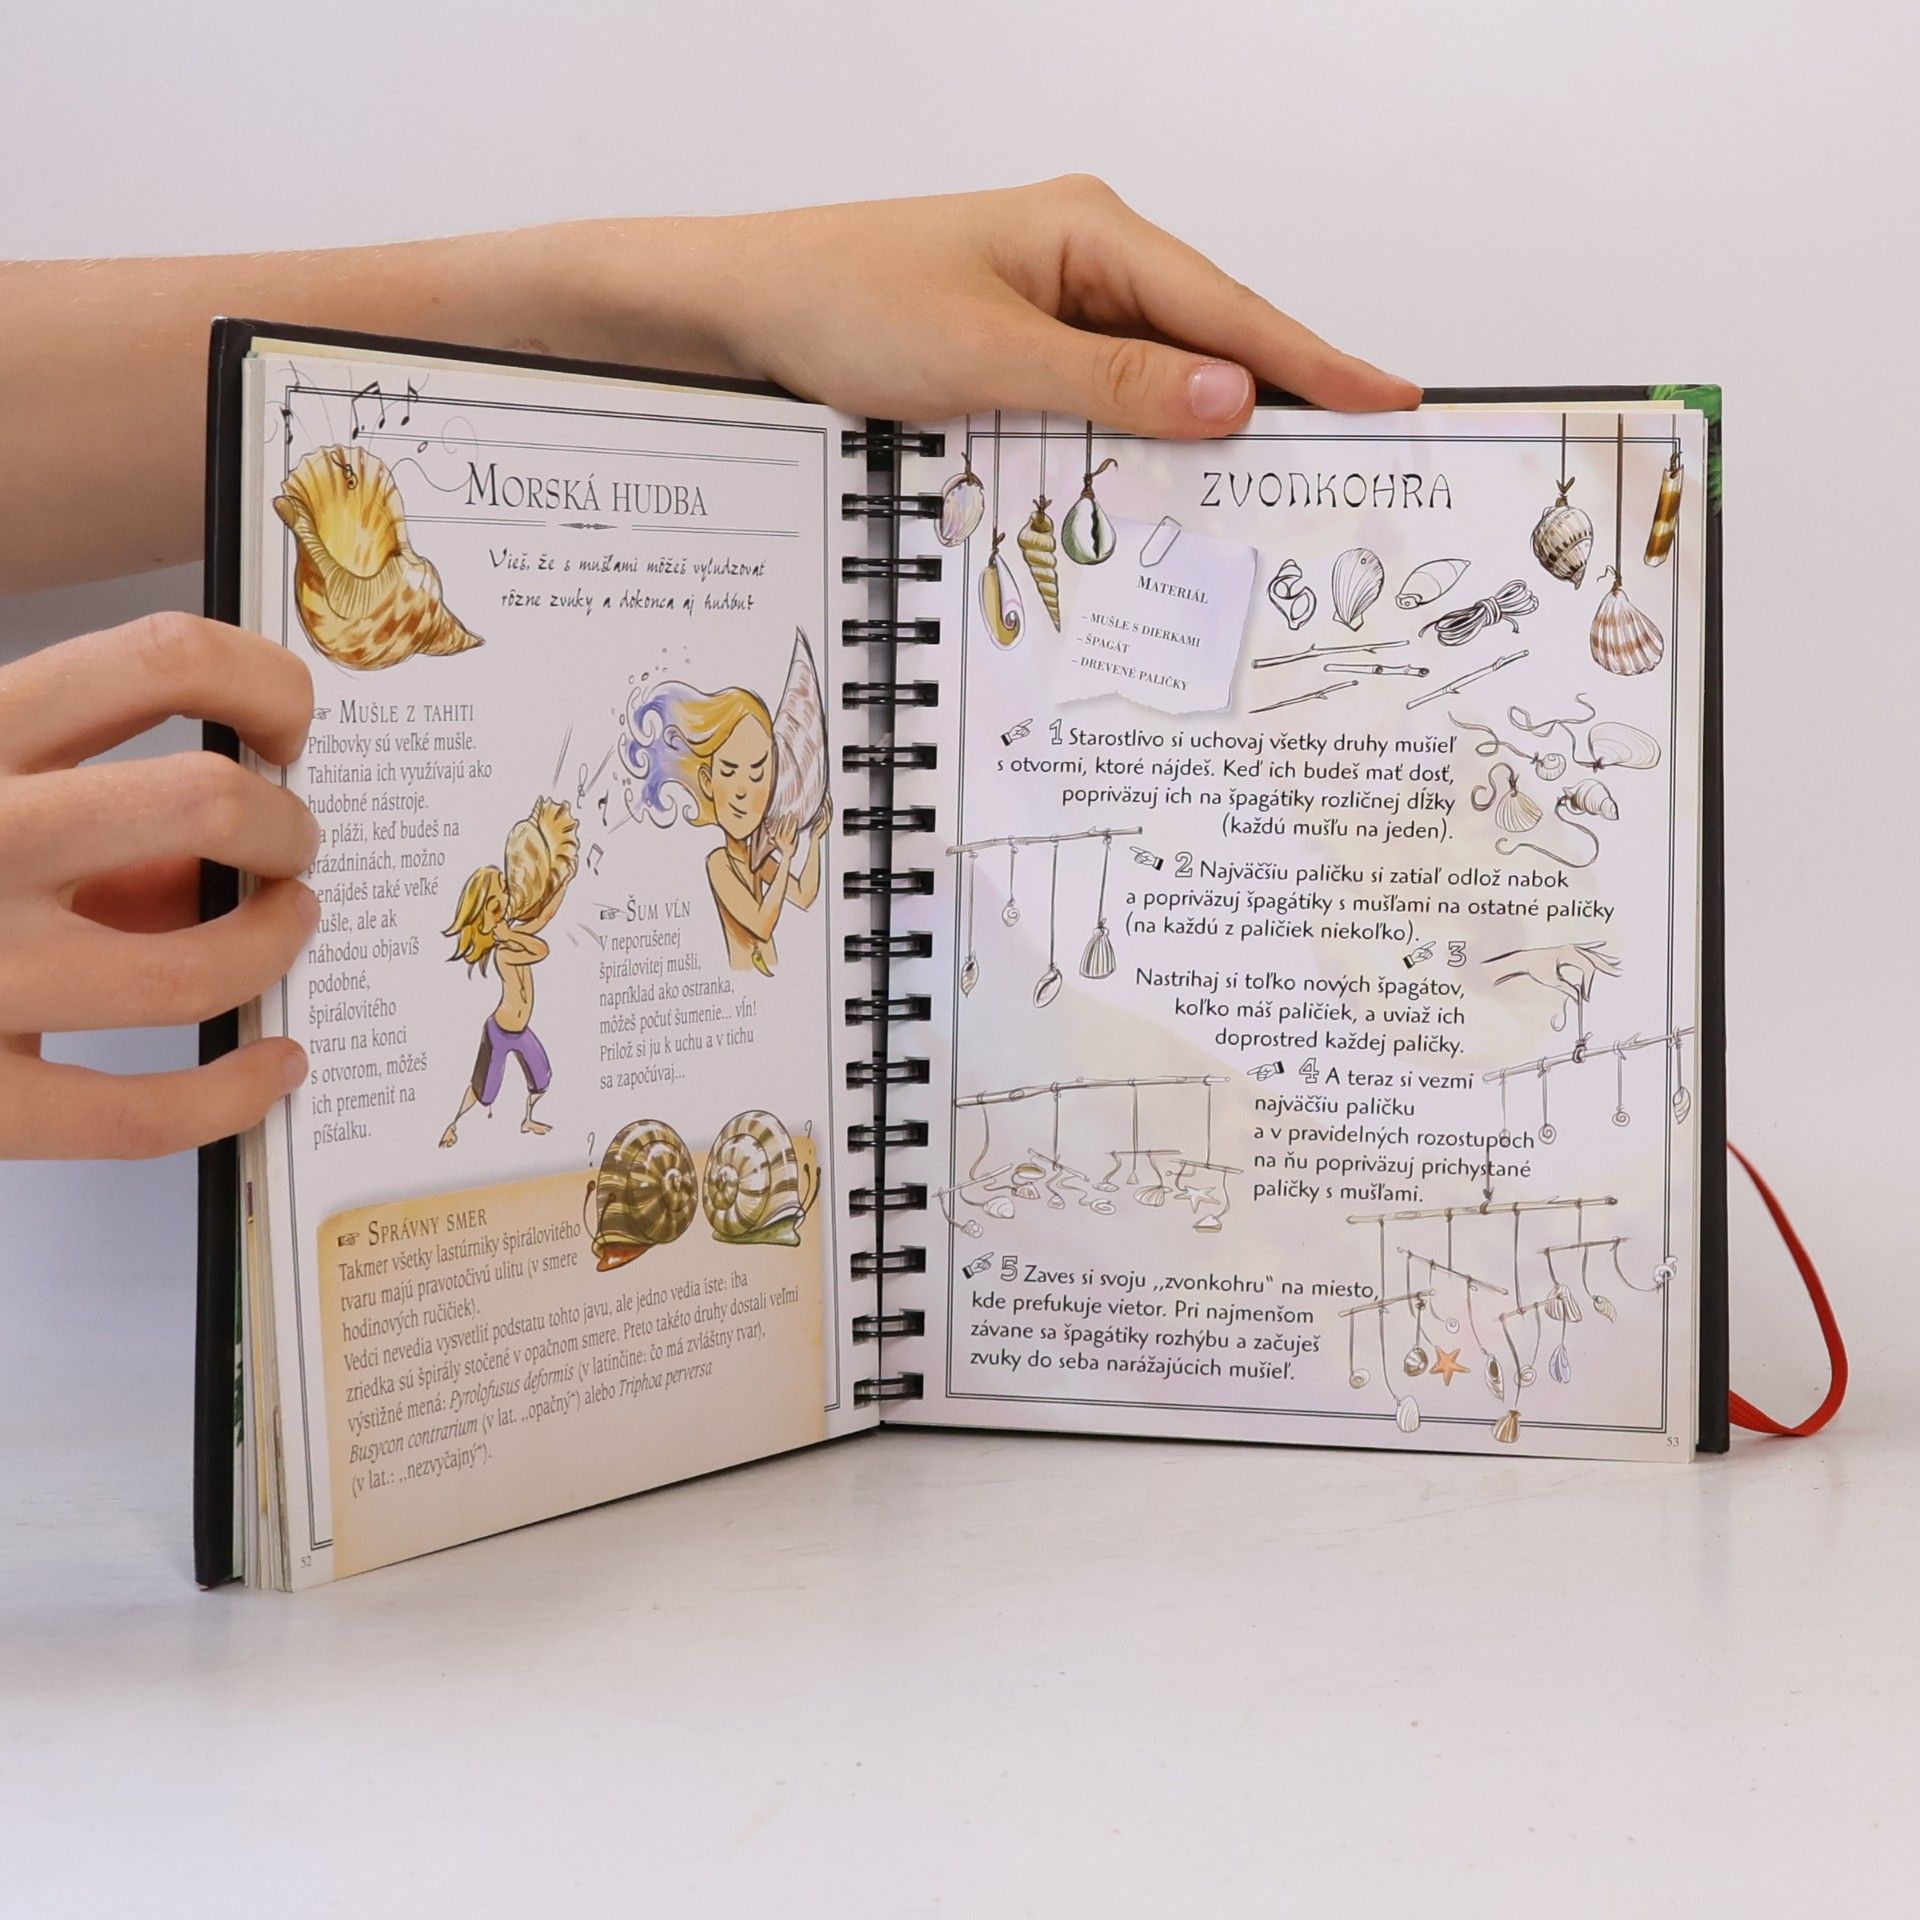 MORSKÁ HUDBA
Vieš, že s mušľami môžeš vyludzovať
rôzne zvuky a dokonca aj hudbu?
MUŠLE Z TAHITI
Prilbovky sú veľké mušle.
Tahiťania ich využívajú ako
hudobné nástroje.
pláži, keď budeš na
prázdninách, možno
nenájdeš také veľké
mušle, ale ak
náhodou objavíš
podobné,
špirálovitého
tvaru na konci
s otvorom, môžeš
ich premeniť na
píšťalku.
ŠUM VĹN
V neporušenej
špirálovitej mušli,
napríklad ako ostranka,
môžeš počuť šumenie... vĺn!
Prilož si ju k uchu a v tichu
sa započúvaj...
SPRÁVNY SMER
Takmer všetky lastúrniky špirálovitého
tvaru majú pravotočivú ulitu (v smere
hodinových ručičiek).
Vedci nevedia vysvetliť podstatu tohto javu, ale jedno vedia iste: iba
zriedka sú špirály stočené v opačnom smere. Preto takéto druhy dostali veľmi
výstižné mená: Pyrolofusus deformis (v latinčine: čo má zvláštny tvar),
Busycon contrarium (v lat. „opačný“) alebo Triphoa perversa
(v lat.: „nezvyčajný“).
52
ZVONKOHRA
MATERIÁL
– MUŠLE S DIERKAMI
– ŠPAGÁT
– DREVENÉ PALIČKY
1 Starostlivo si uchovaj všetky druhy mušieľ
s otvormi, ktoré nájdeš. Keď ich budeš mať dosť,
popriväzuj ich na špagátiky rozličnej dĺžky
(každú mušľu na jeden).
2 Najväčšiu paličku si zatiaľ odlož nabok
a popriväzuj špagátiky s mušľami na ostatné paličky
(na každú z paličiek niekoľko).
3
Nastrihaj si toľko nových špagátov,
koľko máš paličiek, a uviaž ich
doprostred každej paličky.
4 A teraz si vezmi
najväčšiu paličku
a v pravidelných rozostupoch
na ňu popriväzuj prichystané
paličky s mušľami.
5 Zaves si svoju „zvonkohru“ na miesto,
kde prefukuje vietor. Pri najmenšom
závane sa špagátiky rozhýbu a začuješ
zvuky do seba narážajúcich mušieľ.
53